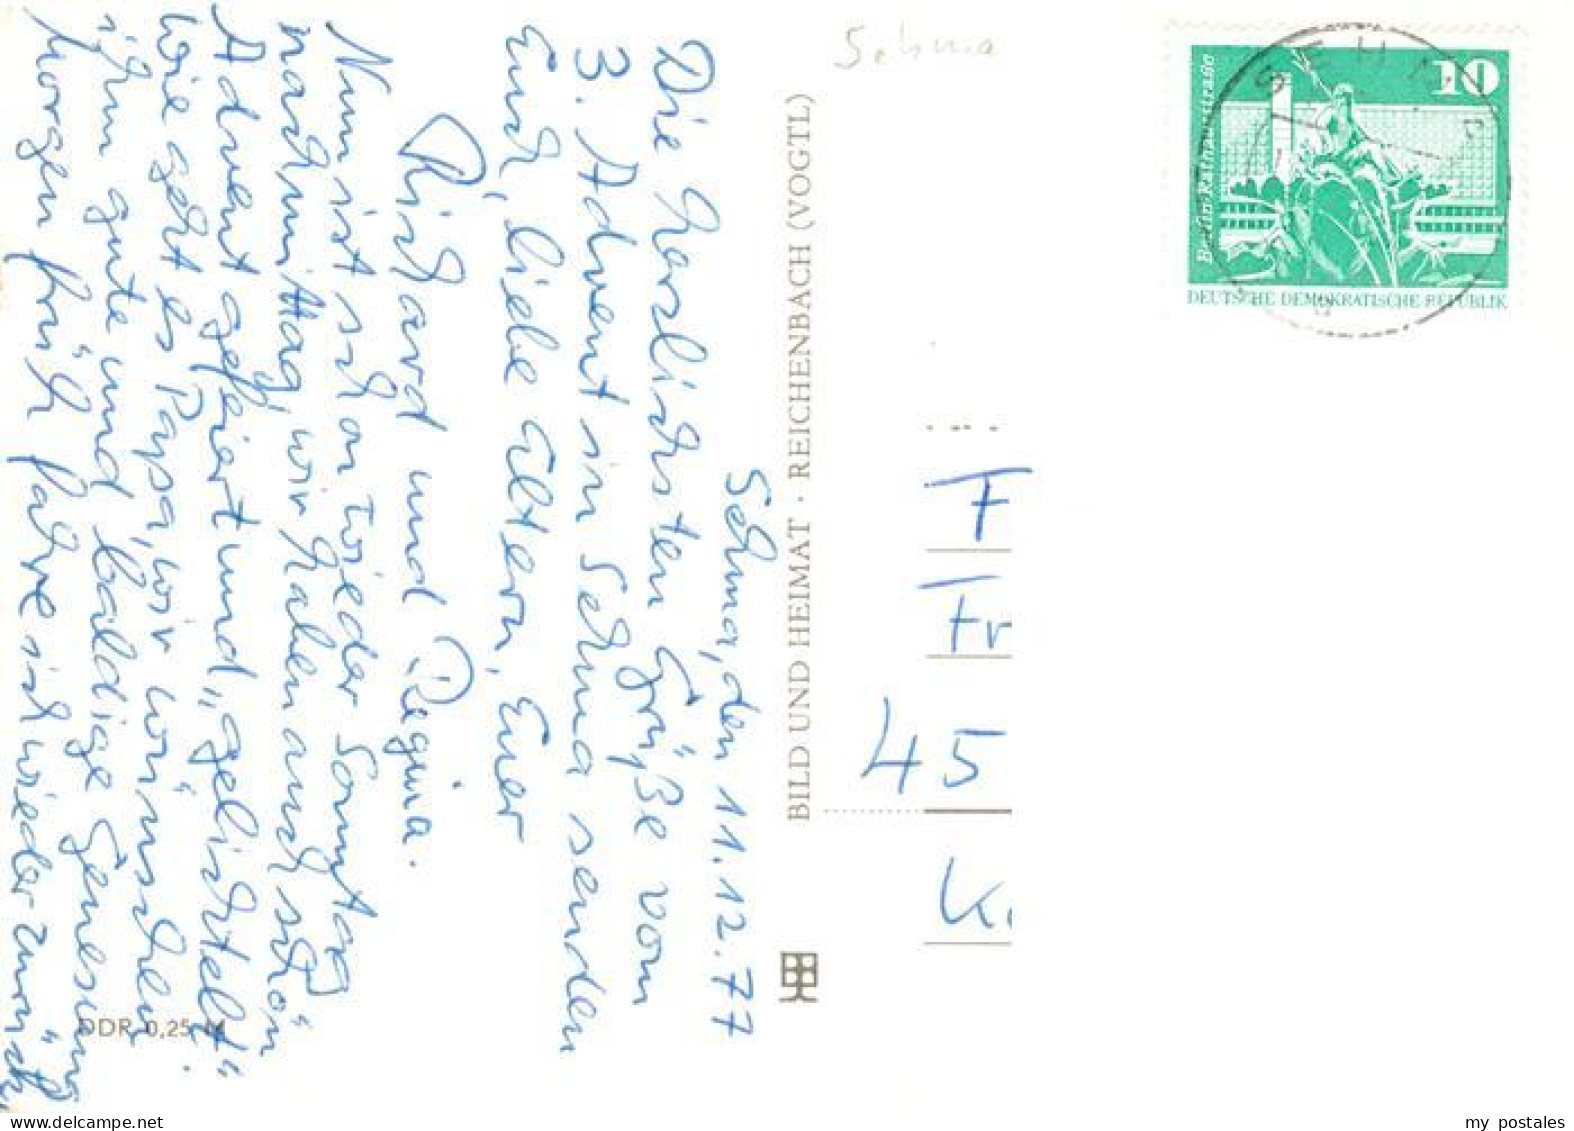 Sehma, den 11.12.77
Die herzlichsten Grüße vom
3. Advent in Sehma senden
Euch, liebe Eltern, Euer
Richard und Regina.
Nun ist schon wieder Sonntag
nachmittag, wir haben auch schön
Advent gefeiert und „gelichtelt“.
Wie geht es Papa, wir wünschen
ihm gute und baldige Genesung
Morgen früh fahre ich wieder zurück
DDR 0,25 M
BILD UND HEIMAT · REICHENBACH (VOGTL)
Sehma
Berlin-Rathausstraße
10
DEUTSCHE DEMOKRATISCHE REPUBLIK
F
Fr
45
K
my postales